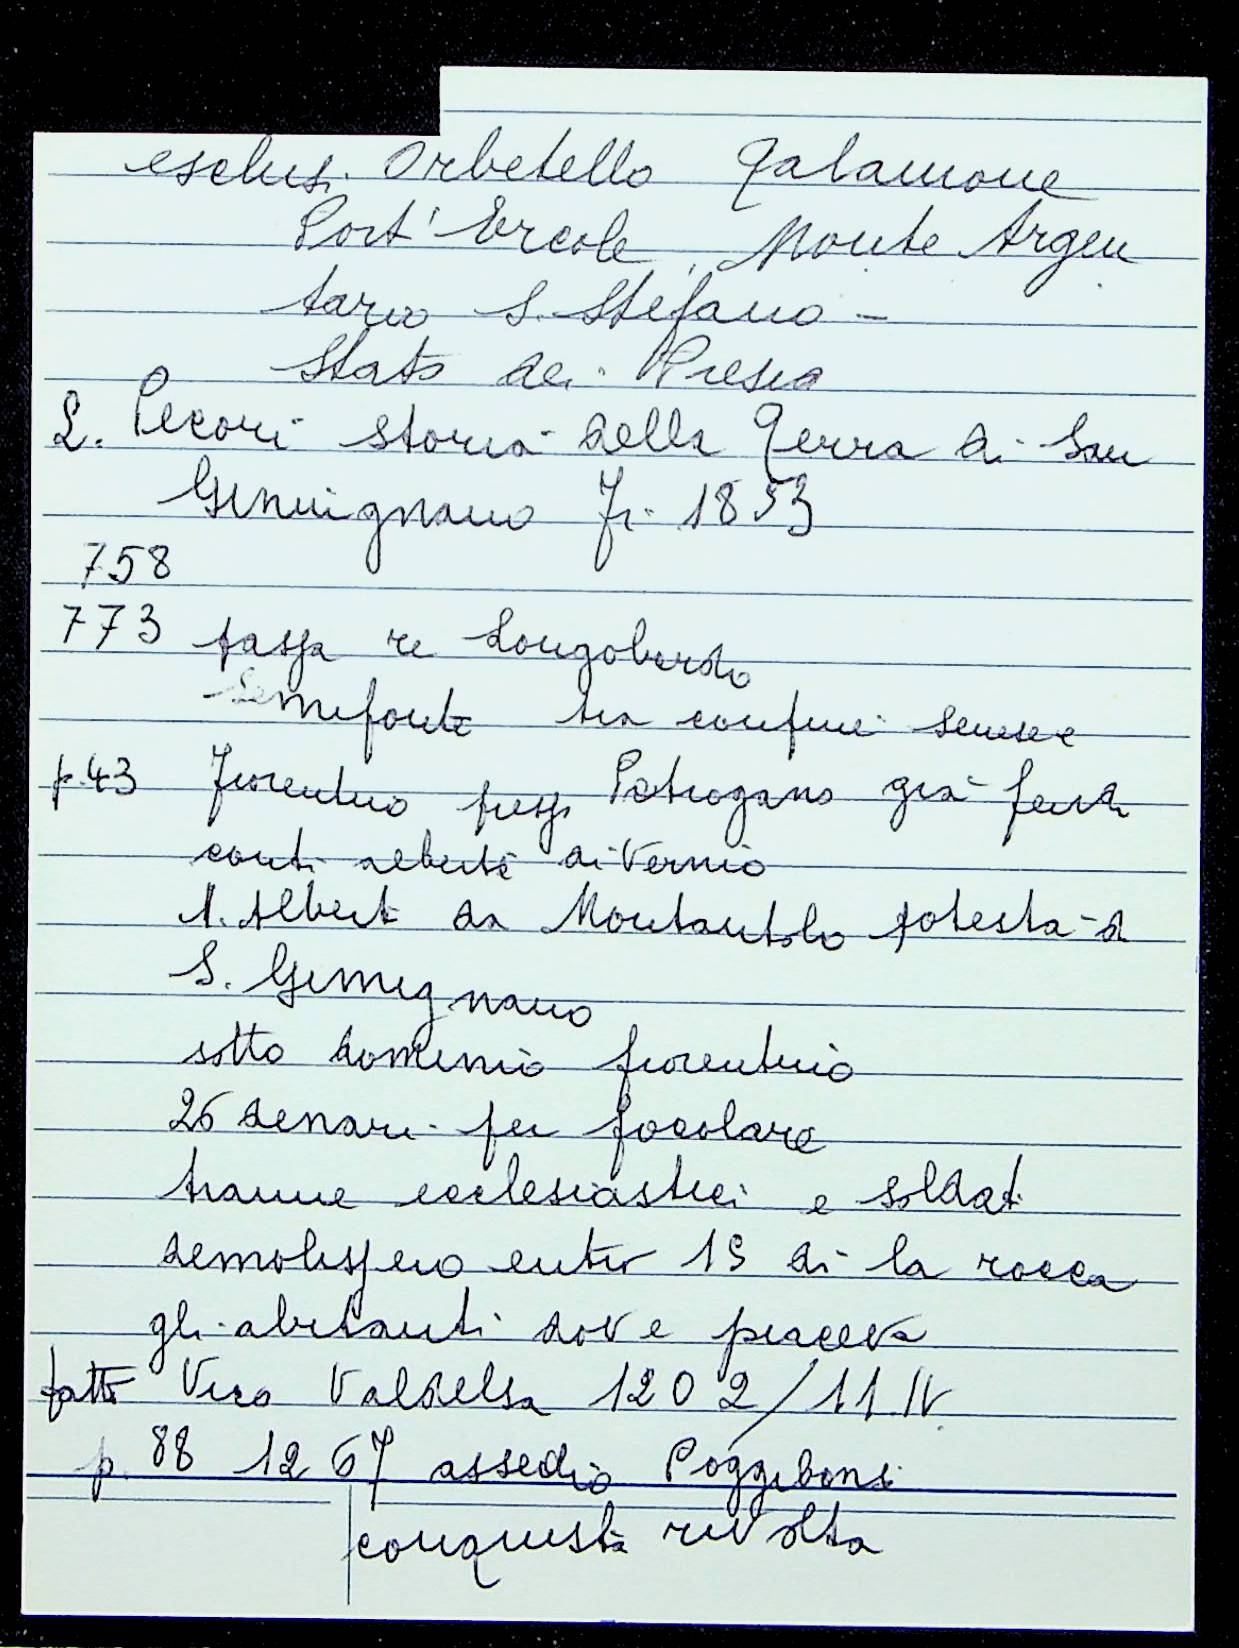 esclusi Orbetello Talamone
Port'Ercole, Monte Argen
tario S. Stefano -
Stato dei Presid
L. Pecori storia della Terra di San
Gimignano Fi. 1853
758
773 tassa re Longobardo
Semifonte tra confini senese e
p. 43 Fiorentino presso Petrogano già feudo
conti Alberti di Vernio
1. Alberto da Montautolo potestà d
S. Gimignano
sotto dominio fiorentino
26 denari per focolare
tranne ecclesiastici e soldati
demolissero entro 15 dì la rocca
gli abitanti dove piaceva
fatto Vico Valdelsa 1202/11.IV.
p. 88 1267 assedio Poggibonsi
conquista rivolta